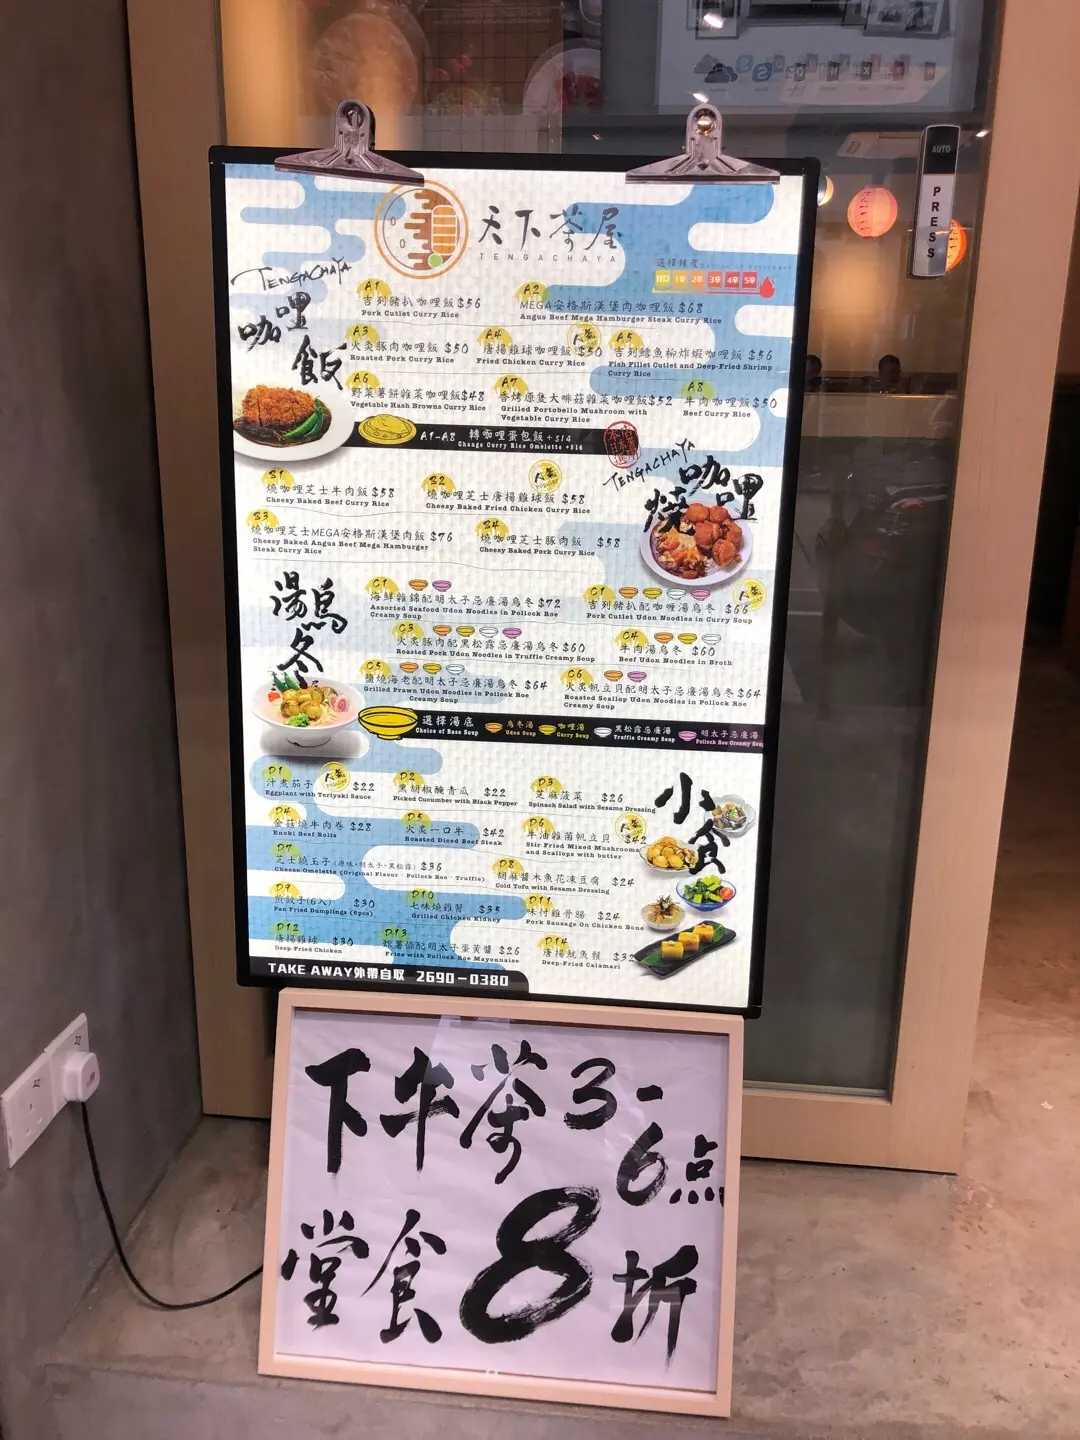 AUTO
PRESS
天下茶屋
TENGACHAYA
選擇辣度
TENGACHAYA
咖哩飯
A1
吉列豬扒咖哩飯 $56
Pork Cutlet Curry Rice
A2
MEGA安格斯漢堡肉咖哩飯 $68
Angus Beef Mega Hamburger Steak Curry Rice
A3
火炙豚肉咖哩飯 $50
Roasted Pork Curry Rice
A4
人氣
唐揚雞球咖哩飯 $50
Fried Chicken Curry Rice
A5
吉列鱈魚柳炸蝦咖哩飯 $56
Fish Fillet Cutlet and Deep-Fried Shrimp
Curry Rice
A6
野菜薯餅雜菜咖哩飯 $48
Vegetable Hash Browns Curry Rice
A7
香烤原隻大啡菇雜菜咖哩飯 $52
Grilled Portobello Mushroom with
Vegetable Curry Rice
A8
牛肉咖哩飯 $50
Beef Curry Rice
A1-A8 轉咖哩蛋包飯 +$14
Change Curry Rice Omelette +$14
TENGACHAYA
燒咖哩
B1
燒咖哩芝士牛肉飯 $58
Cheesy Baked Beef Curry Rice
B2
人氣
燒咖哩芝士唐揚雞球飯 $58
Cheesy Baked Fried Chicken Curry Rice
B3
燒咖哩芝士MEGA安格斯漢堡肉飯 $76
Cheesy Baked Angus Beef Mega Hamburger
Steak Curry Rice
B4
燒咖哩芝士豚肉飯 $58
Cheesy Baked Pork Curry Rice
湯烏冬
C1
海鮮雜錦配明太子忌廉湯烏冬 $72
Assorted Seafood Udon Noodles in Pollock Roe
Creamy Soup
人氣
吉列豬扒配咖喱湯烏冬 $66
Pork Cutlet Udon Noodles in Curry Soup
C3
火炙豚肉配黑松露忌廉湯烏冬 $60
Roasted Pork Udon Noodles in Truffle Creamy Soup
C4
牛肉湯烏冬 $60
Beef Udon Noodles in Broth
C5
鹽燒海老配明太子忌廉湯烏冬 $64
Grilled Prawn Udon Noodles in Pollock Roe
Creamy Soup
C6
火炙帆立貝配明太子忌廉湯烏冬 $64
Roasted Scallop Udon Noodles in Pollock Roe
Creamy Soup
選擇湯底
Choice of Base Soup
烏冬湯
Udon Soup
咖哩湯
Curry Soup
黑松露忌廉湯
Truffle Creamy Soup
明太子忌廉湯
Pollock Roe Creamy Soup
小食
D1
汁煮茄子 人氣 $22
Eggplant with Teriyaki Sauce
D2
黑胡椒醃青瓜 $22
Picked Cucumber with Black Pepper
D3
芝麻菠菜 $26
Spinach Salad with Sesame Dressing
D4
金菇燒牛肉卷 $28
Enoki Beef Rolls
D5
火炙一口牛 $42
Roasted Diced Beef Steak
D6
人氣
牛油雜菌帆立貝 $42
Stir Fried Mixed Mushrooms
and Scallops with butter
D7
芝士燒玉子(原味·明太子·黑松露) $36
Cheese Omelette (Original Flavor · Pollock Roe · Truffle)
D8
胡麻醬木魚花凍豆腐 $24
Cold Tofu with Sesame Dressing
D9
煎餃子(6入) $30
Pan Fried Dumplings (6pcs)
D10
七味燒雞腎 $35
Grilled Chicken Kidney
D11
味付雞骨腸 $24
Pork Sausage On Chicken Bone
D12
唐揚雞球 $30
Deep-Fried Chicken
D13
炸薯條配明太子蛋黃醬 $26
Fries with Pollock Roe Mayonnaise
D14
唐揚魷魚鬚 $32
Deep-Fried Calamari
TAKE AWAY外帶自取 2690-0380
下午茶3-
6点
堂食8折